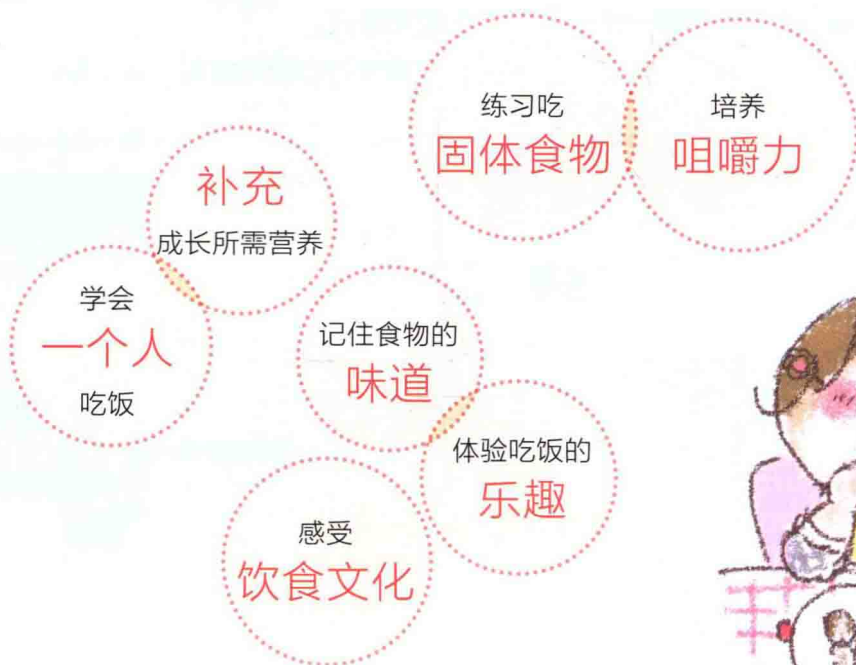 练习吃
固体食物
培养
咀嚼力
补充
成长所需营养
学会
一个人
吃饭
记住食物的
味道
体验吃饭的
乐趣
感受
饮食文化